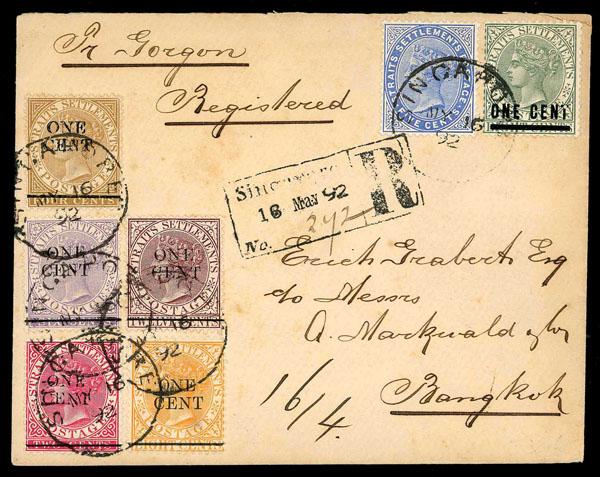 Pr Gorgon
Registered
STRAITS SETTLEMENTS
POSTAGE
FIVE CENTS
STRAITS SETTLEMENTS
ONE CENT
SINGAPORE
MY 16
92
ONE
CENT
STRAITS SETTLEMENTS
POSTAGE
FOUR CENTS
SINGAPORE
16
92
Singapore
16 May 92
R
No. 242
ONE
CENT
STRAITS SETTLEMENTS
POSTAGE
ONE
CENT
STRAITS SETTLEMENTS
POSTAGE
TWELVE CENTS
SINGAPORE
16
92
Erich Grabert Esq
c/o Messrs
A. Markwald & Co
Bangkok
ONE
CENT
STRAITS SETTLEMENTS
POSTAGE
TWO CENTS
SINGAPORE
16
92
ONE
CENT
POSTAGE
EIGHT CENTS
16/4.